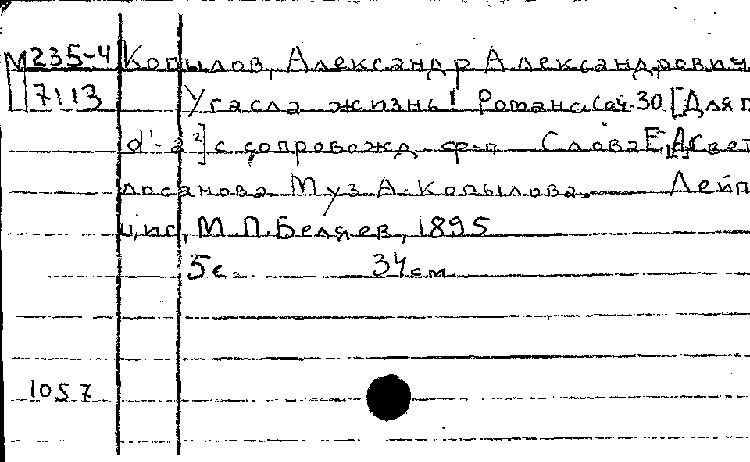 М 235-4 Копылов, Александр Александрович
7113 Угасла жизнь! Романс. Соч. 30. [Для г
d¹-a²] с сопровожд. ф-п. Слова Е. [А.] Свет
лосанова Муз. А. Копылова. Лейп
циг, М. П. Беляев, 1895
5 с. 34 см
1057